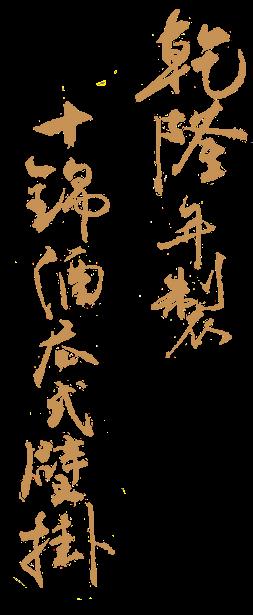 乾隆年製
十錦酒瓜式壁掛